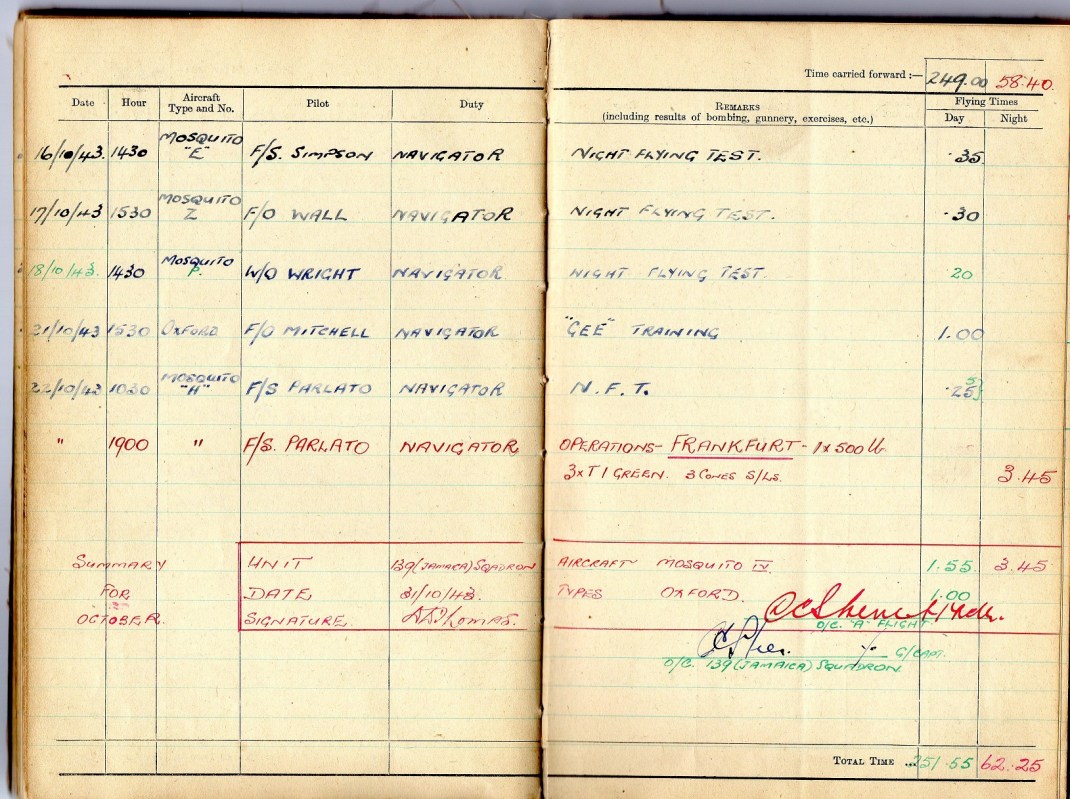 Time carried forward :— 249.00 58.40.
Date Hour Aircraft Type and No. Pilot Duty REMARKS (including results of bombing, gunnery, exercises, etc.) Flying Times Day Night
16/10/43. 1430 MOSQUITO "E" F/S. SIMPSON NAVIGATOR NIGHT FLYING TEST. .35
17/10/43 1530 MOSQUITO Z F/O WALL NAVIGATOR NIGHT FLYING TEST. .30
18/10/43. 1430 MOSQUITO P. W/O WRIGHT NAVIGATOR NIGHT FLYING TEST. 20
21/10/43 1530 OXFORD F/O MITCHELL NAVIGATOR "GEE" TRAINING 1.00
22/10/43 1030 MOSQUITO "H" F/S PARLATO NAVIGATOR N.F.T. .25
" 1900 " F/S. PARLATO NAVIGATOR OPERATIONS- FRANKFURT - 1x500 lb
3xT I GREEN. 3 CONES S/LS. 3.45
SUMMARY UNIT 139(JAMAICA)SQADRON AIRCRAFT MOSQUITO IV. 1.55 3.45
FOR DATE 31/10/43. TYPES OXFORD. 1.00
OCTOBER. SIGNATURE.
O/C. "A" FLIGHT
G/CAPT.
O/C. 139(JAMAICA) SQUADRON.
TOTAL TIME ... 251.55 62.25